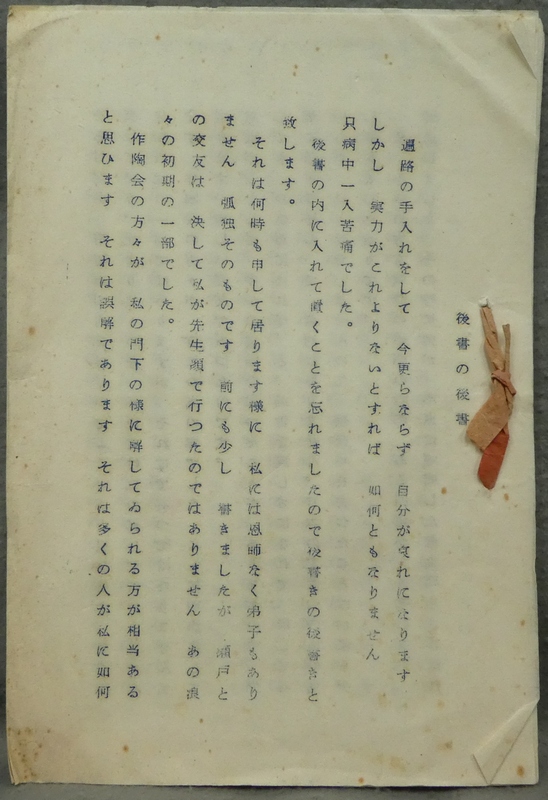 後書の後書
遍路の手入れをして　今更らならず　自分が哀れになります
しかし　実力がこれよりないとすれば　如何ともなりません
只病中一入苦痛でした。
後書の内に入れて置くことを忘れましたので後書きの後書きと
致します。
それは何時も申して居ります様に　私には恩師なく弟子もあり
ません　孤独そのものです　前にも少し　書きましたが　瀬戸と
の交友は　決して私が先生顔で行つたのではありません　あの浪
々の初期の一部でした。
作陶会の方々が　私の門下の様に解してゐられる方が相当ある
と思ひます　それは誤解であります　それは多くの人が私に如何